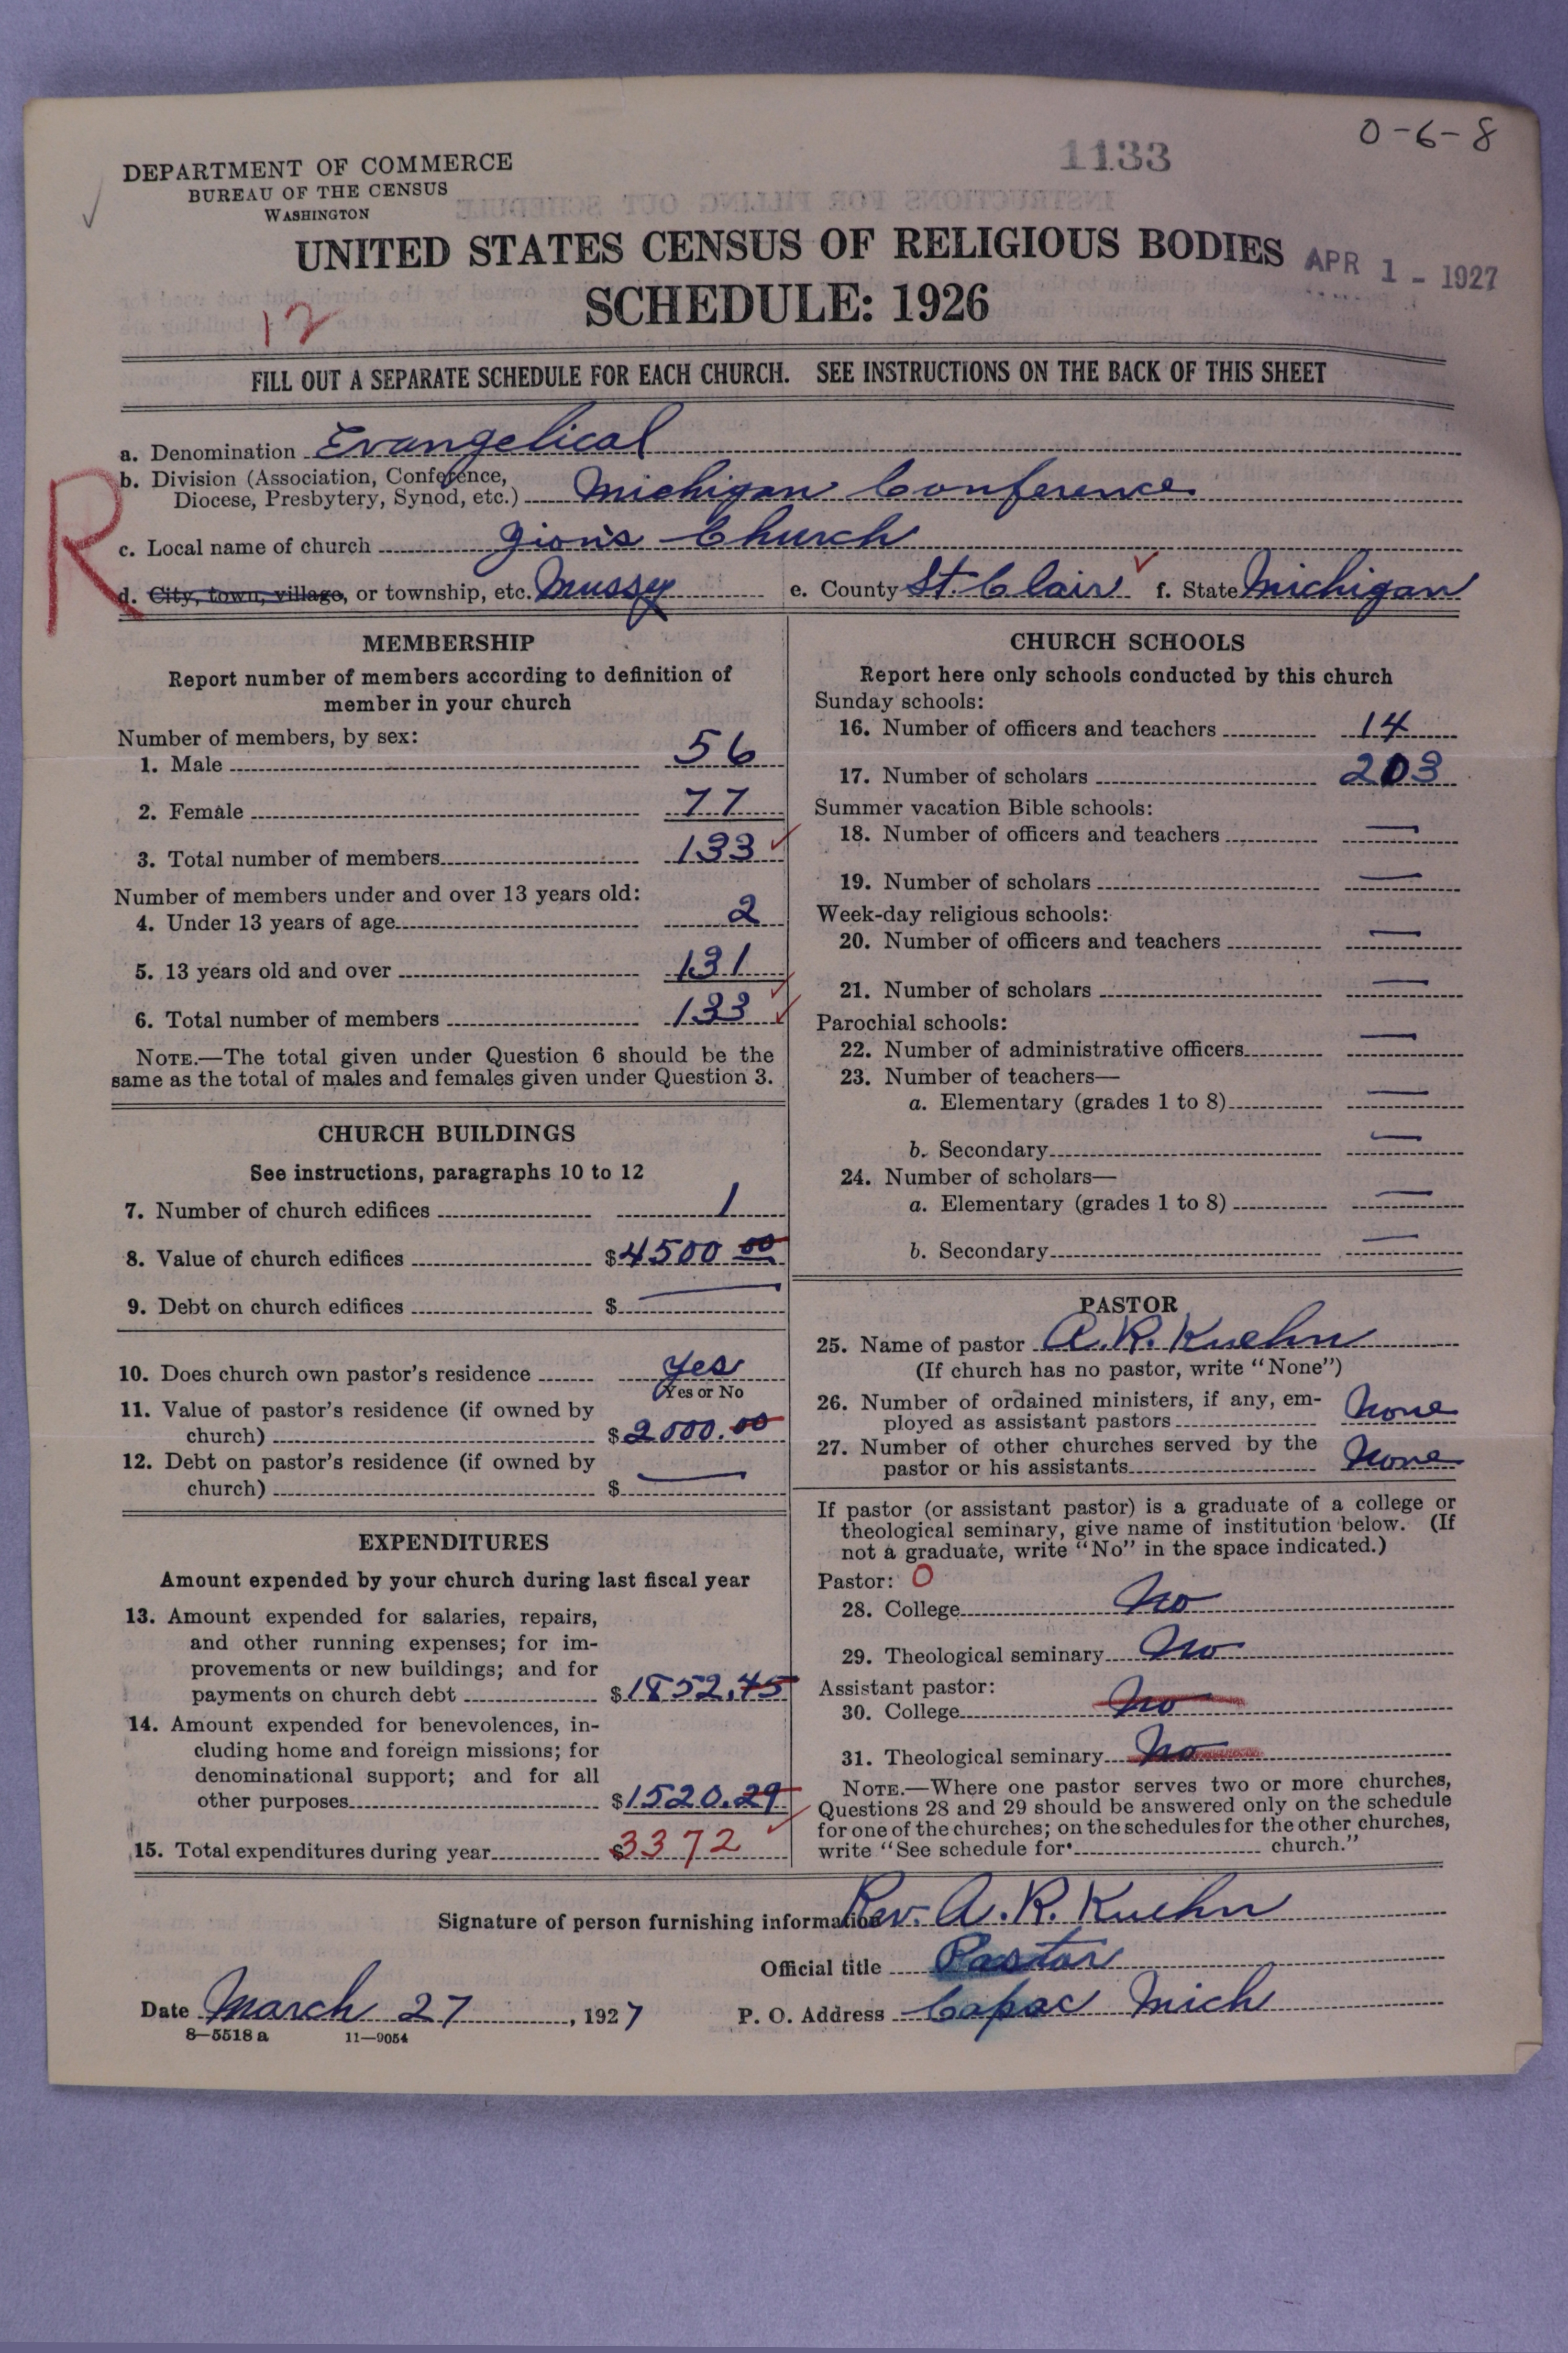 0-6-8
1133
DEPARTMENT OF COMMERCE
BUREAU OF THE CENSUS
WASHINGTON
UNITED STATES CENSUS OF RELIGIOUS BODIES
APR 1 - 1927
SCHEDULE: 1926
12
FILL OUT A SEPARATE SCHEDULE FOR EACH CHURCH. SEE INSTRUCTIONS ON THE BACK OF THIS SHEET
R
a. Denomination Evangelical
b. Division (Association, Conference,
Diocese, Presbytery, Synod, etc.) Michigan Conference
c. Local name of church Zion's Church
d. City, town, village, or township, etc. Mussey e. County St. Clair f. State Michigan
MEMBERSHIP
Report number of members according to definition of
member in your church
Number of members, by sex:
1. Male 56
2. Female 77
3. Total number of members 133
Number of members under and over 13 years old:
4. Under 13 years of age 2
5. 13 years old and over 131
6. Total number of members 133
NOTE.—The total given under Question 6 should be the
same as the total of males and females given under Question 3.
CHURCH BUILDINGS
See instructions, paragraphs 10 to 12
7. Number of church edifices 1
8. Value of church edifices $4500 00
9. Debt on church edifices $ —
10. Does church own pastor's residence yes
Yes or No
11. Value of pastor's residence (if owned by
church) $2000.00
12. Debt on pastor's residence (if owned by
church) $ —
EXPENDITURES
Amount expended by your church during last fiscal year
13. Amount expended for salaries, repairs,
and other running expenses; for im-
provements or new buildings; and for
payments on church debt $1852.45
14. Amount expended for benevolences, in-
cluding home and foreign missions; for
denominational support; and for all
other purposes $1520.29
15. Total expenditures during year $3372
CHURCH SCHOOLS
Report here only schools conducted by this church
Sunday schools:
16. Number of officers and teachers 14
17. Number of scholars 203
Summer vacation Bible schools:
18. Number of officers and teachers —
19. Number of scholars —
Week-day religious schools:
20. Number of officers and teachers —
21. Number of scholars —
Parochial schools:
22. Number of administrative officers —
23. Number of teachers—
a. Elementary (grades 1 to 8) —
b. Secondary —
24. Number of scholars—
a. Elementary (grades 1 to 8) —
b. Secondary —
PASTOR
25. Name of pastor A. R. Kuehn
(If church has no pastor, write "None")
26. Number of ordained ministers, if any, em-
ployed as assistant pastors None
27. Number of other churches served by the
pastor or his assistants None
If pastor (or assistant pastor) is a graduate of a college or
theological seminary, give name of institution below. (If
not a graduate, write "No" in the space indicated.)
Pastor: O
28. College No
29. Theological seminary No
Assistant pastor:
30. College No
31. Theological seminary No
NOTE.—Where one pastor serves two or more churches,
Questions 28 and 29 should be answered only on the schedule
for one of the churches; on the schedules for the other churches,
write "See schedule for church."
Signature of person furnishing information Rev. A. R. Kuehn
Official title Pastor
Date March 27, 1927 P. O. Address Capac Mich
8—5518 a 11—9054